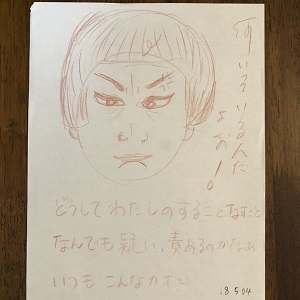 何いってるんだ
よお!
どうしてわたしのすることなすこと
なんでも疑い、責めるのかなぁ
いつもこんなカオで
18.5.04